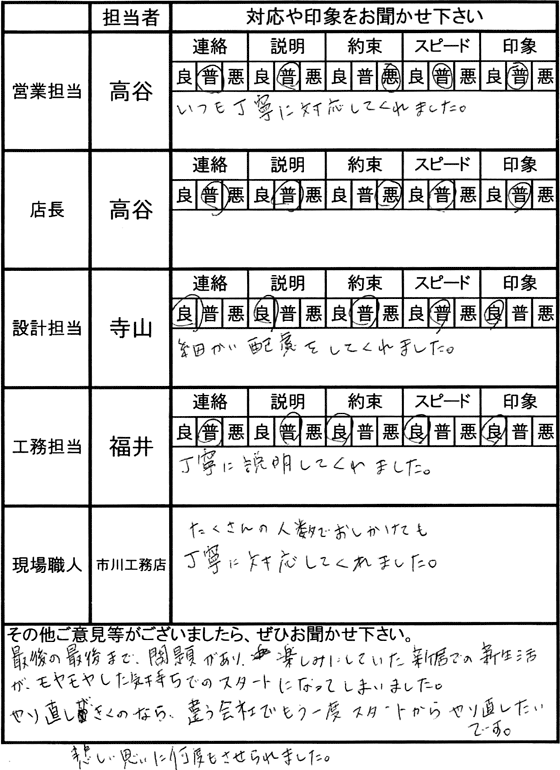 担当者 対応や印象をお聞かせ下さい
営業担当 高谷
連絡 説明 約束 スピード 印象
良 普 悪 良 普 悪 良 普 悪 良 普 悪 良 普 悪
いつも丁寧に対応してくれました。
店長 高谷
連絡 説明 約束 スピード 印象
良 普 悪 良 普 悪 良 普 悪 良 普 悪 良 普 悪
設計担当 寺山
連絡 説明 約束 スピード 印象
良 普 悪 良 普 悪 良 普 悪 良 普 悪 良 普 悪
細かい配慮をしてくれました。
工務担当 福井
連絡 説明 約束 スピード 印象
良 普 悪 良 普 悪 良 普 悪 良 普 悪 良 普 悪
丁寧に説明してくれました。
現場職人 市川工務店
たくさんの人数でおしかけても
丁寧に対応してくれました。
その他ご意見等がございましたら、ぜひお聞かせ下さい。
最後の最後まで、問題があり、楽しみにしていた新居での新生活
が、モヤモヤした気持ちでのスタートになってしまいました。
やり直しきくのなら、違う会社でもう一度スタートからやり直したい
です。
悲しい思いに何度もさせられました。